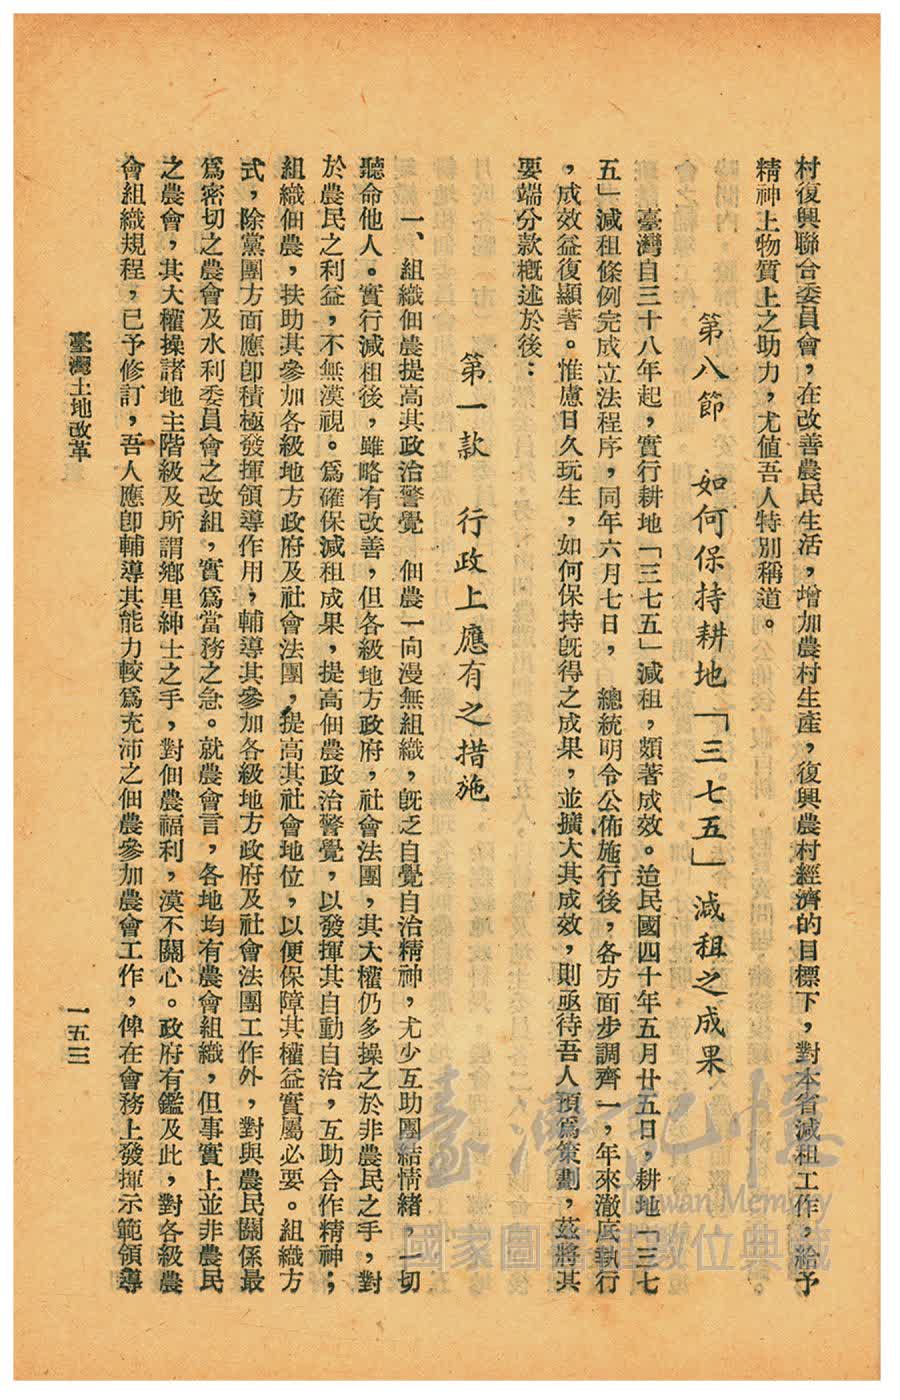 村復興聯合委員會，在改善農民生活，增加農村生產，復興農村經濟的目標下，對本省減租工作，給予
精神上物質上之助力，尤值吾人特別稱道。
第八節　如何保持耕地「三七五」減租之成果
臺灣自三十八年起，實行耕地「三七五」減租，頗著成效。迨民國四十年五月廿五日，耕地「三七
五」減租條例完成立法程序，同年六月七日，　總統明令公佈施行後，各方面步調齊一，年來澈底執行
，成效益復顯著。惟慮日久玩生，如何保持旣得之成果，並擴大其成效，則亟待吾人預爲策劃，茲將其
要端分款槪述於後：
第一款　行政上應有之措施
一、組織佃農提高其政治警覺　佃農一向漫無組織，旣乏自覺自治精神，尤少互助團結情緒，一切
聽命他人。實行減租後，雖略有改善，但各級地方政府，社會法團，其大權仍多操之於非農民之手，對
於農民之利益，不無漠視。爲確保減租成果，提高佃農政治警覺，以發揮其自動自治，互助合作精神；
組織佃農，扶助其參加各級地方政府及社會法團，提高其社會地位，以便保障其權益實屬必要。組織方
式，除黨團方面應卽積極發揮領導作用，輔導其參加各級地方政府及社會法團工作外，對與農民關係最
爲密切之農會及水利委員會之改組，實爲當務之急。就農會言，各地均有農會組織，但事實上並非農民
之農會，其大權操諸地主階級及所謂鄉里紳士之手，對佃農福利，漠不關心。政府有鑑及此，對各級農
會組織規程，已予修訂，吾人應卽輔導其能力較爲充沛之佃農參加農會工作，俾在會務上發揮示範領導
臺灣土地改革
一五三
臺灣記憶
Taiwan Memory
國家圖書館數位典藏